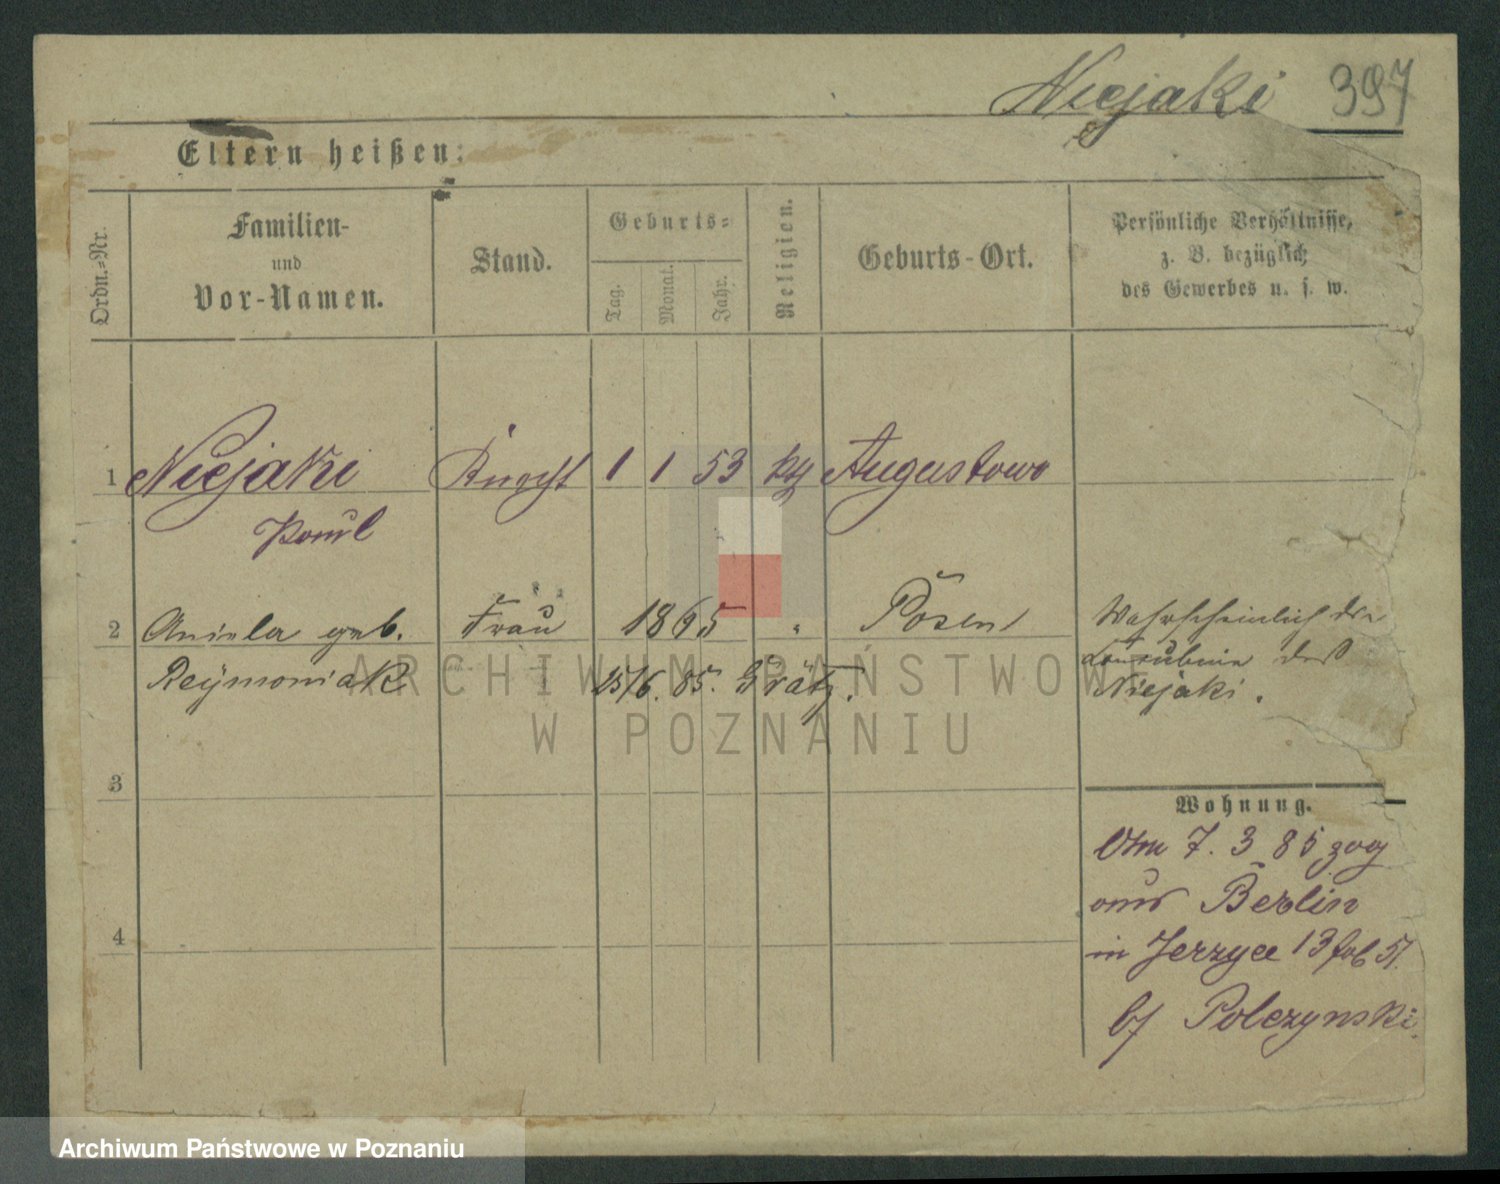 Niejaki 397
Eltern heißen:
Ordn.-Nr.
Familien-
und
Vor-Namen.
Stand.
Geburts-
Tag.
Monat.
Jahr.
Religien.
Geburts-Ort.
Persönliche Verhältnisse,
z. B. bezüglich
des Gewerbes u. s. w.
1 Niejaki Knecht 1 1 53 kth Augustowo
Paul
2 Aniela geb. Frau 1865 " Posen
Reymoniak 25/6. 85. Grätz.
Wahrscheinlich die
des
Niejaki.
3
4
Wohnung.
Am 7. 3 85 zog
aus Berlin
in Jerzyce 13 feb 51.
b/ Polczynski.
ARCHIWUM PAŃSTWOW
W POZNANIU
Archiwum Państwowe w Poznaniu